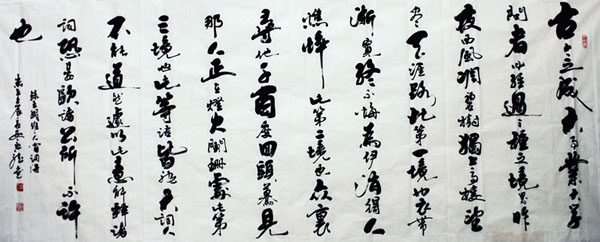 古今之成大事業大學
問者必經過三種之境界昨
夜西風凋碧樹獨上高樓望
盡天涯路此第一境也衣帶
漸寬終不悔為伊消得人
憔悴此第二境也众裏
尋他千百度回頭驀見
那人正在燈火闌珊處第
三境也此等語皆非大詞人
不能道然遽以此意解釋諸
詞恐晏歐諸公所不許
也
錄王國維人間詞話